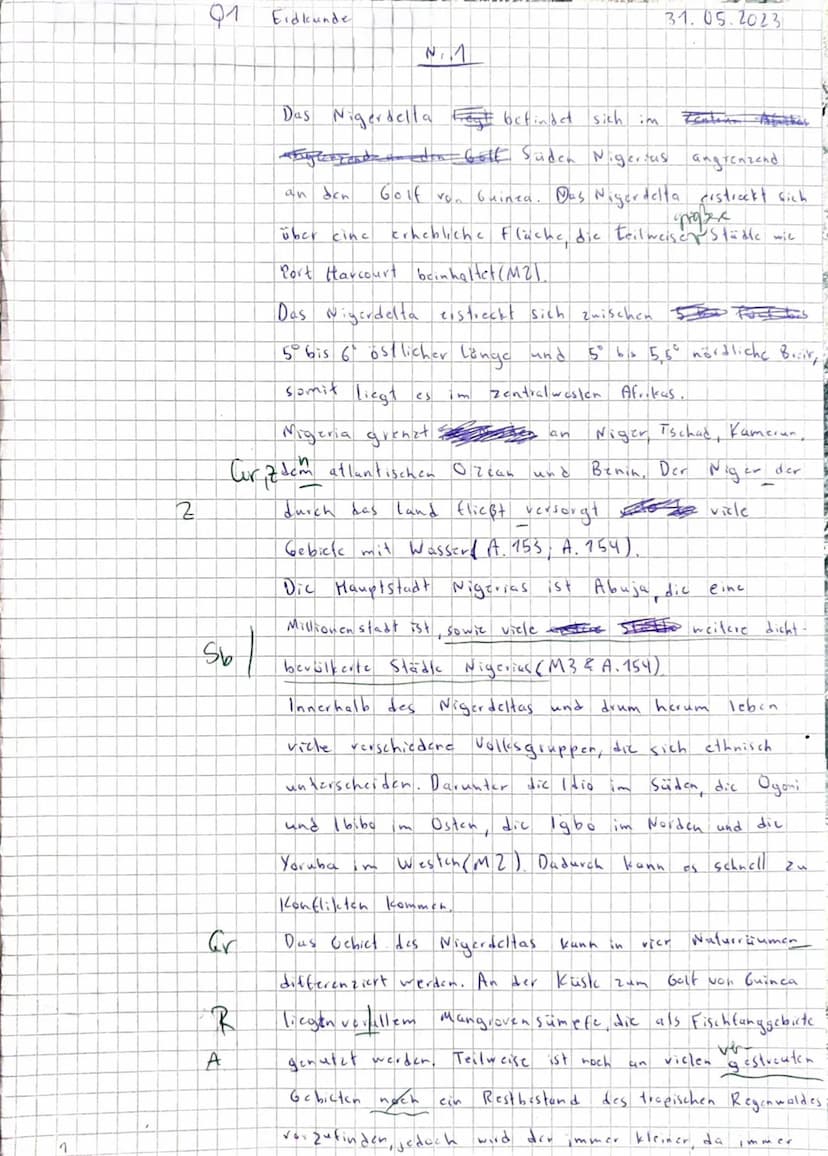 Q1 Erdkunde 31.05.2023
Nr.1
Das Nigerdelta liegt befindet sich im
Süden Nigerias angrenzend
an den Golf von Guinea. Das Nigerdelta erstreckt sich
große
über eine erhebliche Fläche, die teilweise Städte wie
Port Harcourt beinhaltet (M2).
Das Nigerdelta erstreckt sich zwischen
5° bis 6° östlicher Länge und 5° bis 5,5° nördliche Breite,
somit liegt es im zentralwesten Afrikas.
Nigeria grenzt an Niger, Tschad, Kamerun,
Gr, Z dem n atlantischen Ozean und Benin. Der Niger der
Z durch das Land fließt versorgt viele
Gebiete mit Wasser (A.153; A.154).
Die Hauptstadt Nigerias ist Abuja, die eine
Millionenstadt ist, sowie viele weitere dicht-
Sb bevölkerte Städte Nigerias (M3 & A.154)
Innerhalb des Nigerdeltas und drum herum leben
viele verschiedene Volksgruppen, die sich ethnisch
unterscheiden. Darunter die Idio im Süden, die Ogoni
und Ibibo im Osten, die Igbo im Norden und die
Yoruba im Westen (M2). Dadurch kann es schnell zu
Konflikten kommen.
Gr Das Gebiet des Nigerdeltas kann in vier Naturräumen
differenziert werden. An der Küste zum Golf von Guinea
R liegen vor allem Mangrovensümpfe, die als Fischfanggebiete
ver-
A genutzt werden. Teilweise ist noch an vielen gestreuten
Gebieten noch ein Restbestand des tropischen Regenwaldes
vorzufinden, jedoch wird der immer kleiner, da immer
1